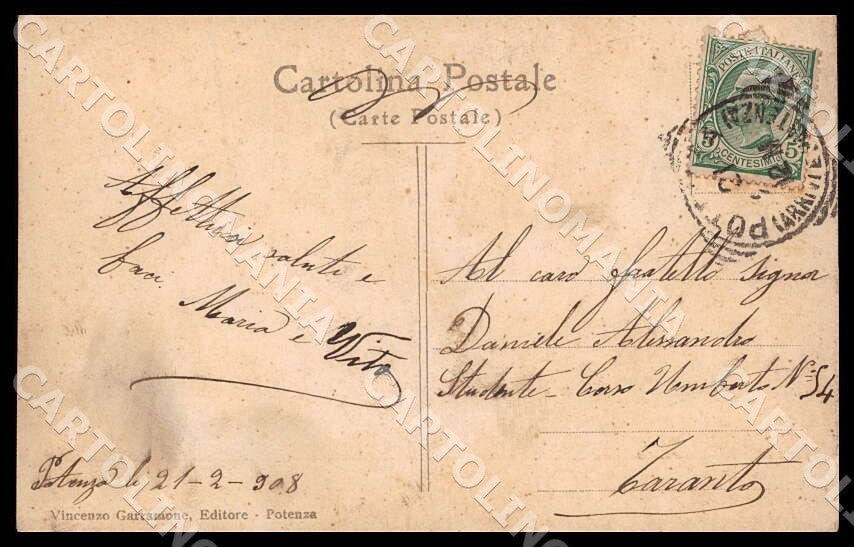 Cartolina Postale
(Carte Postale)
POSTE ITALIANE
5 5
CENTESIMI
Affettuosi saluti e
baci
Maria e Vito
Al caro fratello Signor
Daniele Alessandro
Studente - Corso Umberto N° 54
Taranto
Potenza li 21-2-908
Vincenzo Garramone, Editore - Potenza
CARTOLINOMANIA